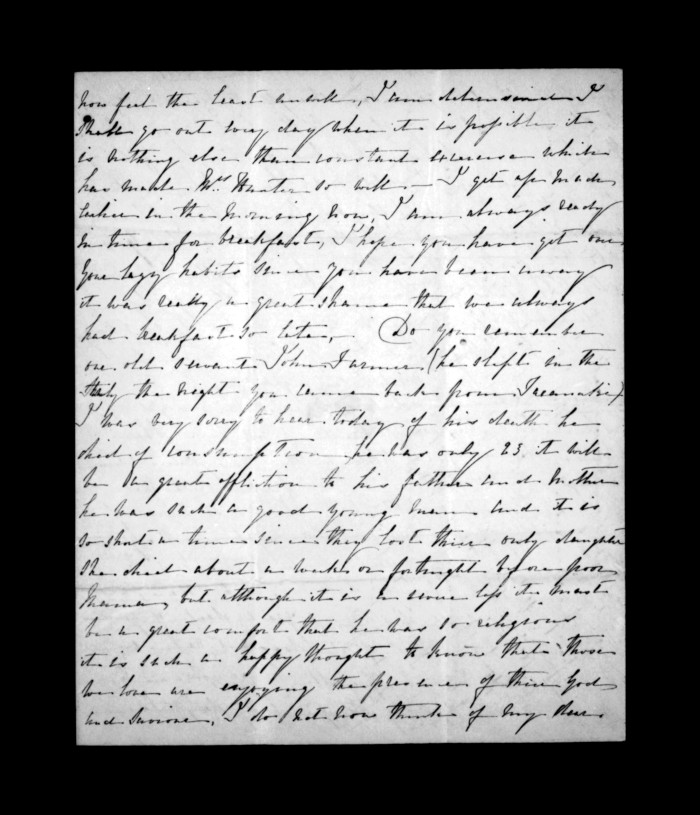 now feel the least weak, I am determined I
shall go out every day when it is possible it
is nothing else than constant exercise which
has made Mrs Hunter so well — I get up much
earlier in the morning now, I am always ready
in time for breakfast, I hope you have got over
your lazy habits since you have been away
it was really a great shame that we always
had breakfast so late, — Do you remember
our old servant John Farmer (he slept in the
study the night you came back from
I was very sorry to hear today of his death he
died of consumption he was only 23, it will
be a great affliction to his father and mother
he was such a good young man and it is
so short a time since they lost their only daughter
she died about a week or fortnight before poor
Mama, but although it is a severe loss it must
be a great comfort that he was so religious
it is such a happy thought to know that those
we love are enjoying the presence of their God
and Saviour, I do not now think of my dear